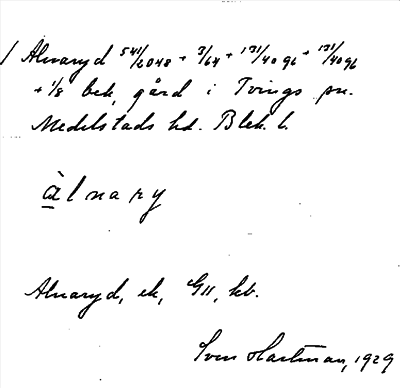 Alnaryd 541/6048 + 3/64 + 131/4096 + 131/4096
+ 1/8 bek. gård i Tvings sn.
Medelstads hd. Blek. l.
àlnary
Alnaryd, ek, G11, kb.
Sven Hartman, 1929